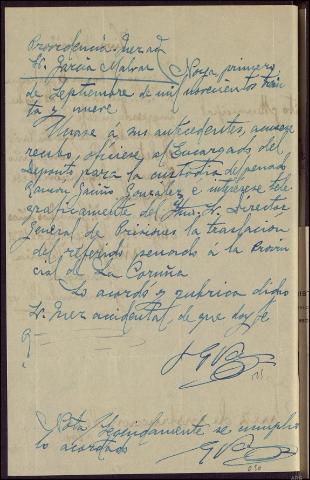 Providencia Juez
Sr. García Malvar Noya primero
de Septiembre de mil novecientos trein
ta y nueve
Unase á sus antecedentes, acusese
recibo, ofíciese al Encargado del
Deposito para la custodia del penado
Ramon González e interesese tele
graficamente del Ilmo. Sr. Director
General de Prisiones la traslación
del referido penado á la Provin
cial de La Coruña
Lo acordó y rubrica dicho
Sr. Juez accidental, de que doy fe
Nota Seguidamente se cumplio
lo acordado